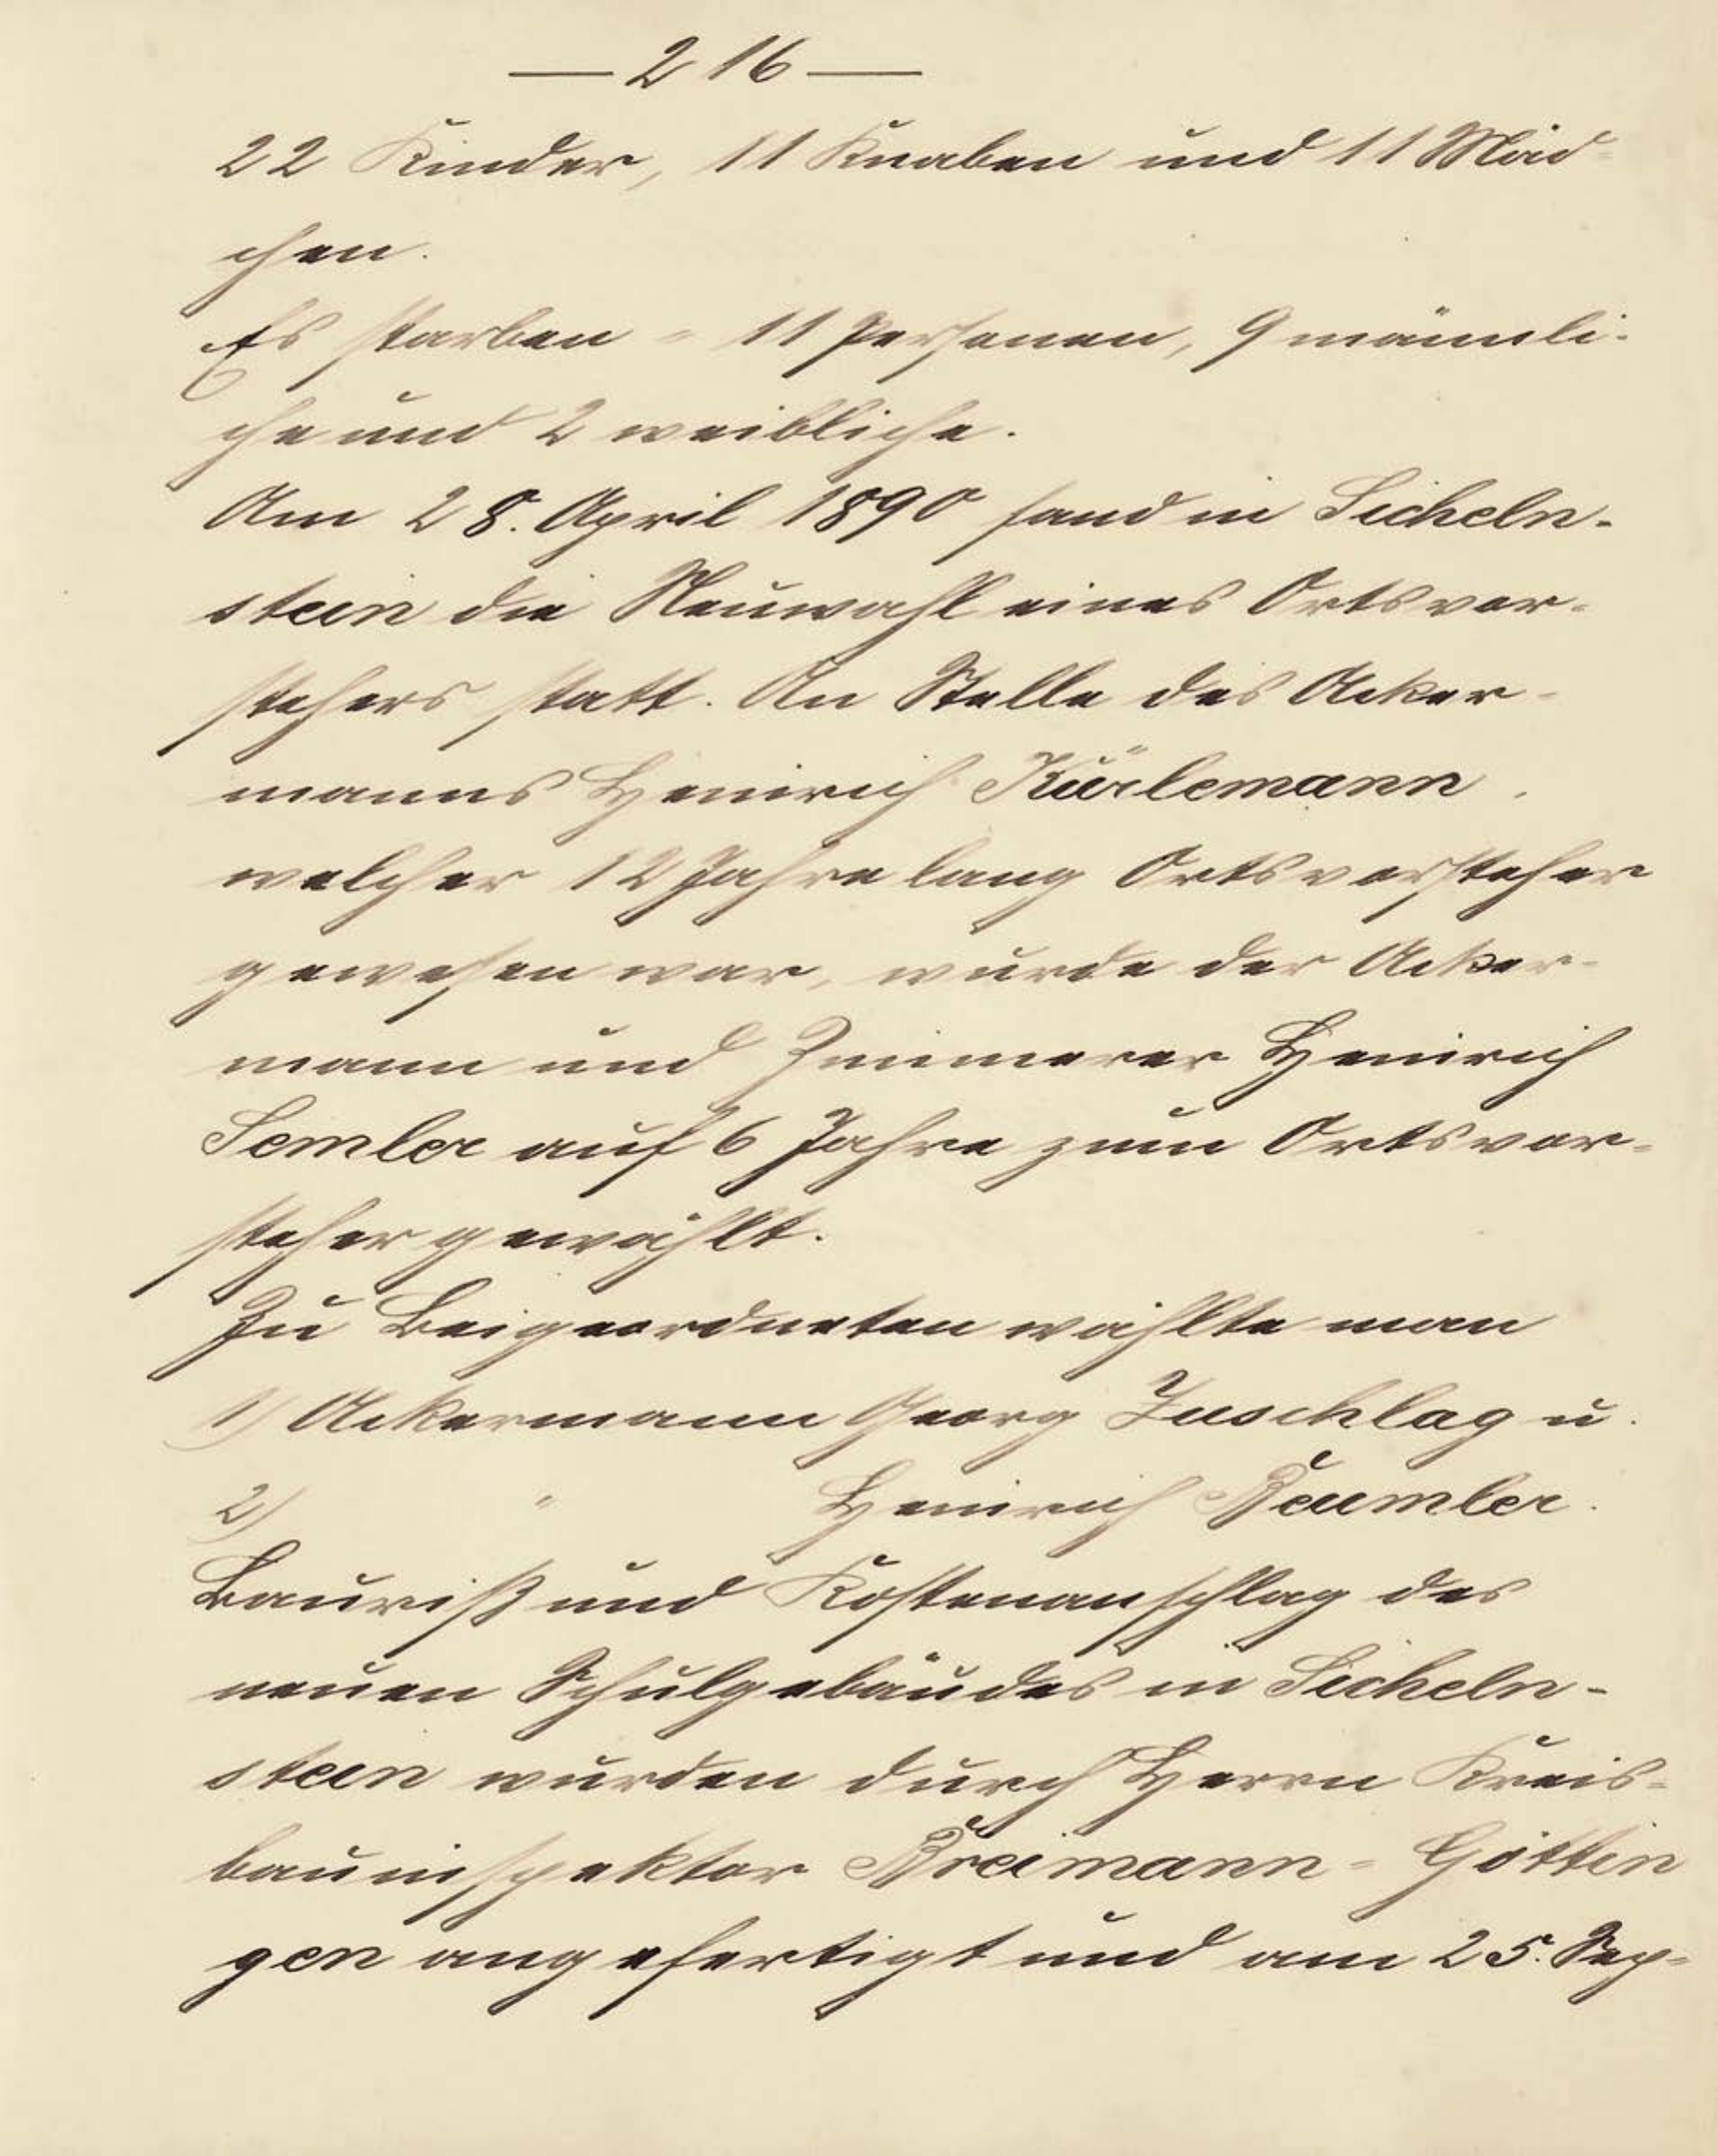 — 216 —
22 Kinder, 11 Knaben und 11 Mäd-
chen.
Es starben - 11 Personen, 9 männli-
che und 2 weibliche.
Am 28. April 1890 fand in Sicheln-
stein die Neuwahl eines Ortsvor-
stehers statt. An Stelle des Acker-
manns Heinrich Kürlemann,
welcher 12 Jahre lang Ortsvorsteher
gewesen war, wurde der Acker-
mann und Zimmerer Heinrich
Semler auf 6 Jahre zum Ortsvor-
steher gewählt.
Zu Beigeordneten wählte man
1) Ackermann Georg Zuschlag u.
2) " Heinrich Beumler.
Bauriß und Kostenanschlag des
neuen Schulgebäudes in Sicheln-
stein wurden durch Herrn Kreis-
bauinspektor Breimann-Göttin
gen angefertigt und am 25. Sep-